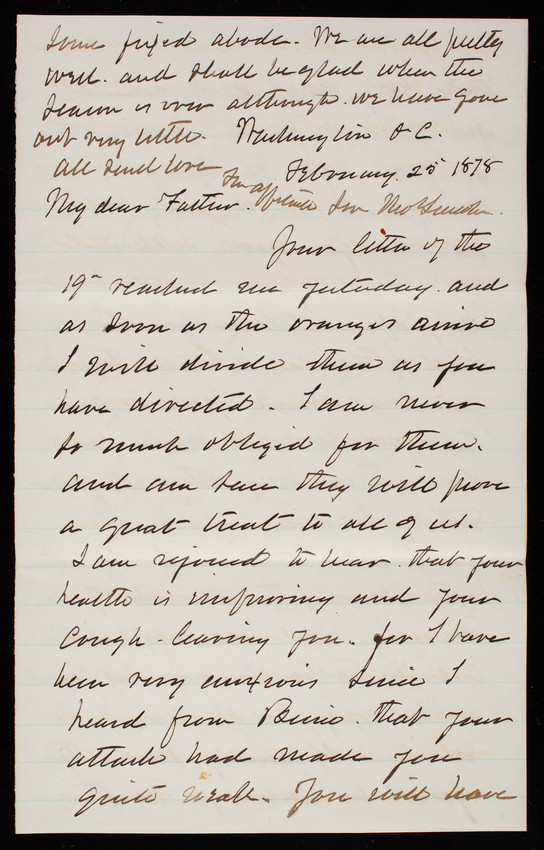 some fixed abode. We are all pretty
well. and shall be glad when the
season is over although. we have gone
out very little. Washington D.C.
All send love February. 25 1878
Your affectionate Son Thos L Casey
My dear Father.
Your letter of the
19" reached me yesterday. and
as soon as the oranges arrive
I will divide them as you
have directed. I am ever
so much obliged for them.
and am sure they will prove
a great treat to all of us.
I am rejoiced to hear. that your
health is improving and your
cough - leaving you. for I have
been very anxious since I
heard from that your
attack had made you
quite weak. You will have